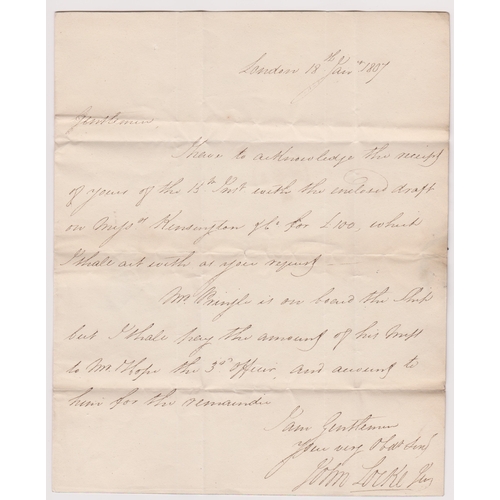 London 18th Jany 1807
Gentlemen
I have to acknowledge the receipt
of yours of the 15th Inst. with the enclosed draft
on Messrs Kensington & Co for £100, which
I shall act with as your request
Mr. Pringle is on board the Ship
but I shall pay the amount of his Mess
to Mr. Hope the 3rd officer and account to
him for the remainder
I am Gentlemen
Your very Obdt Servt
John Locke Jnr